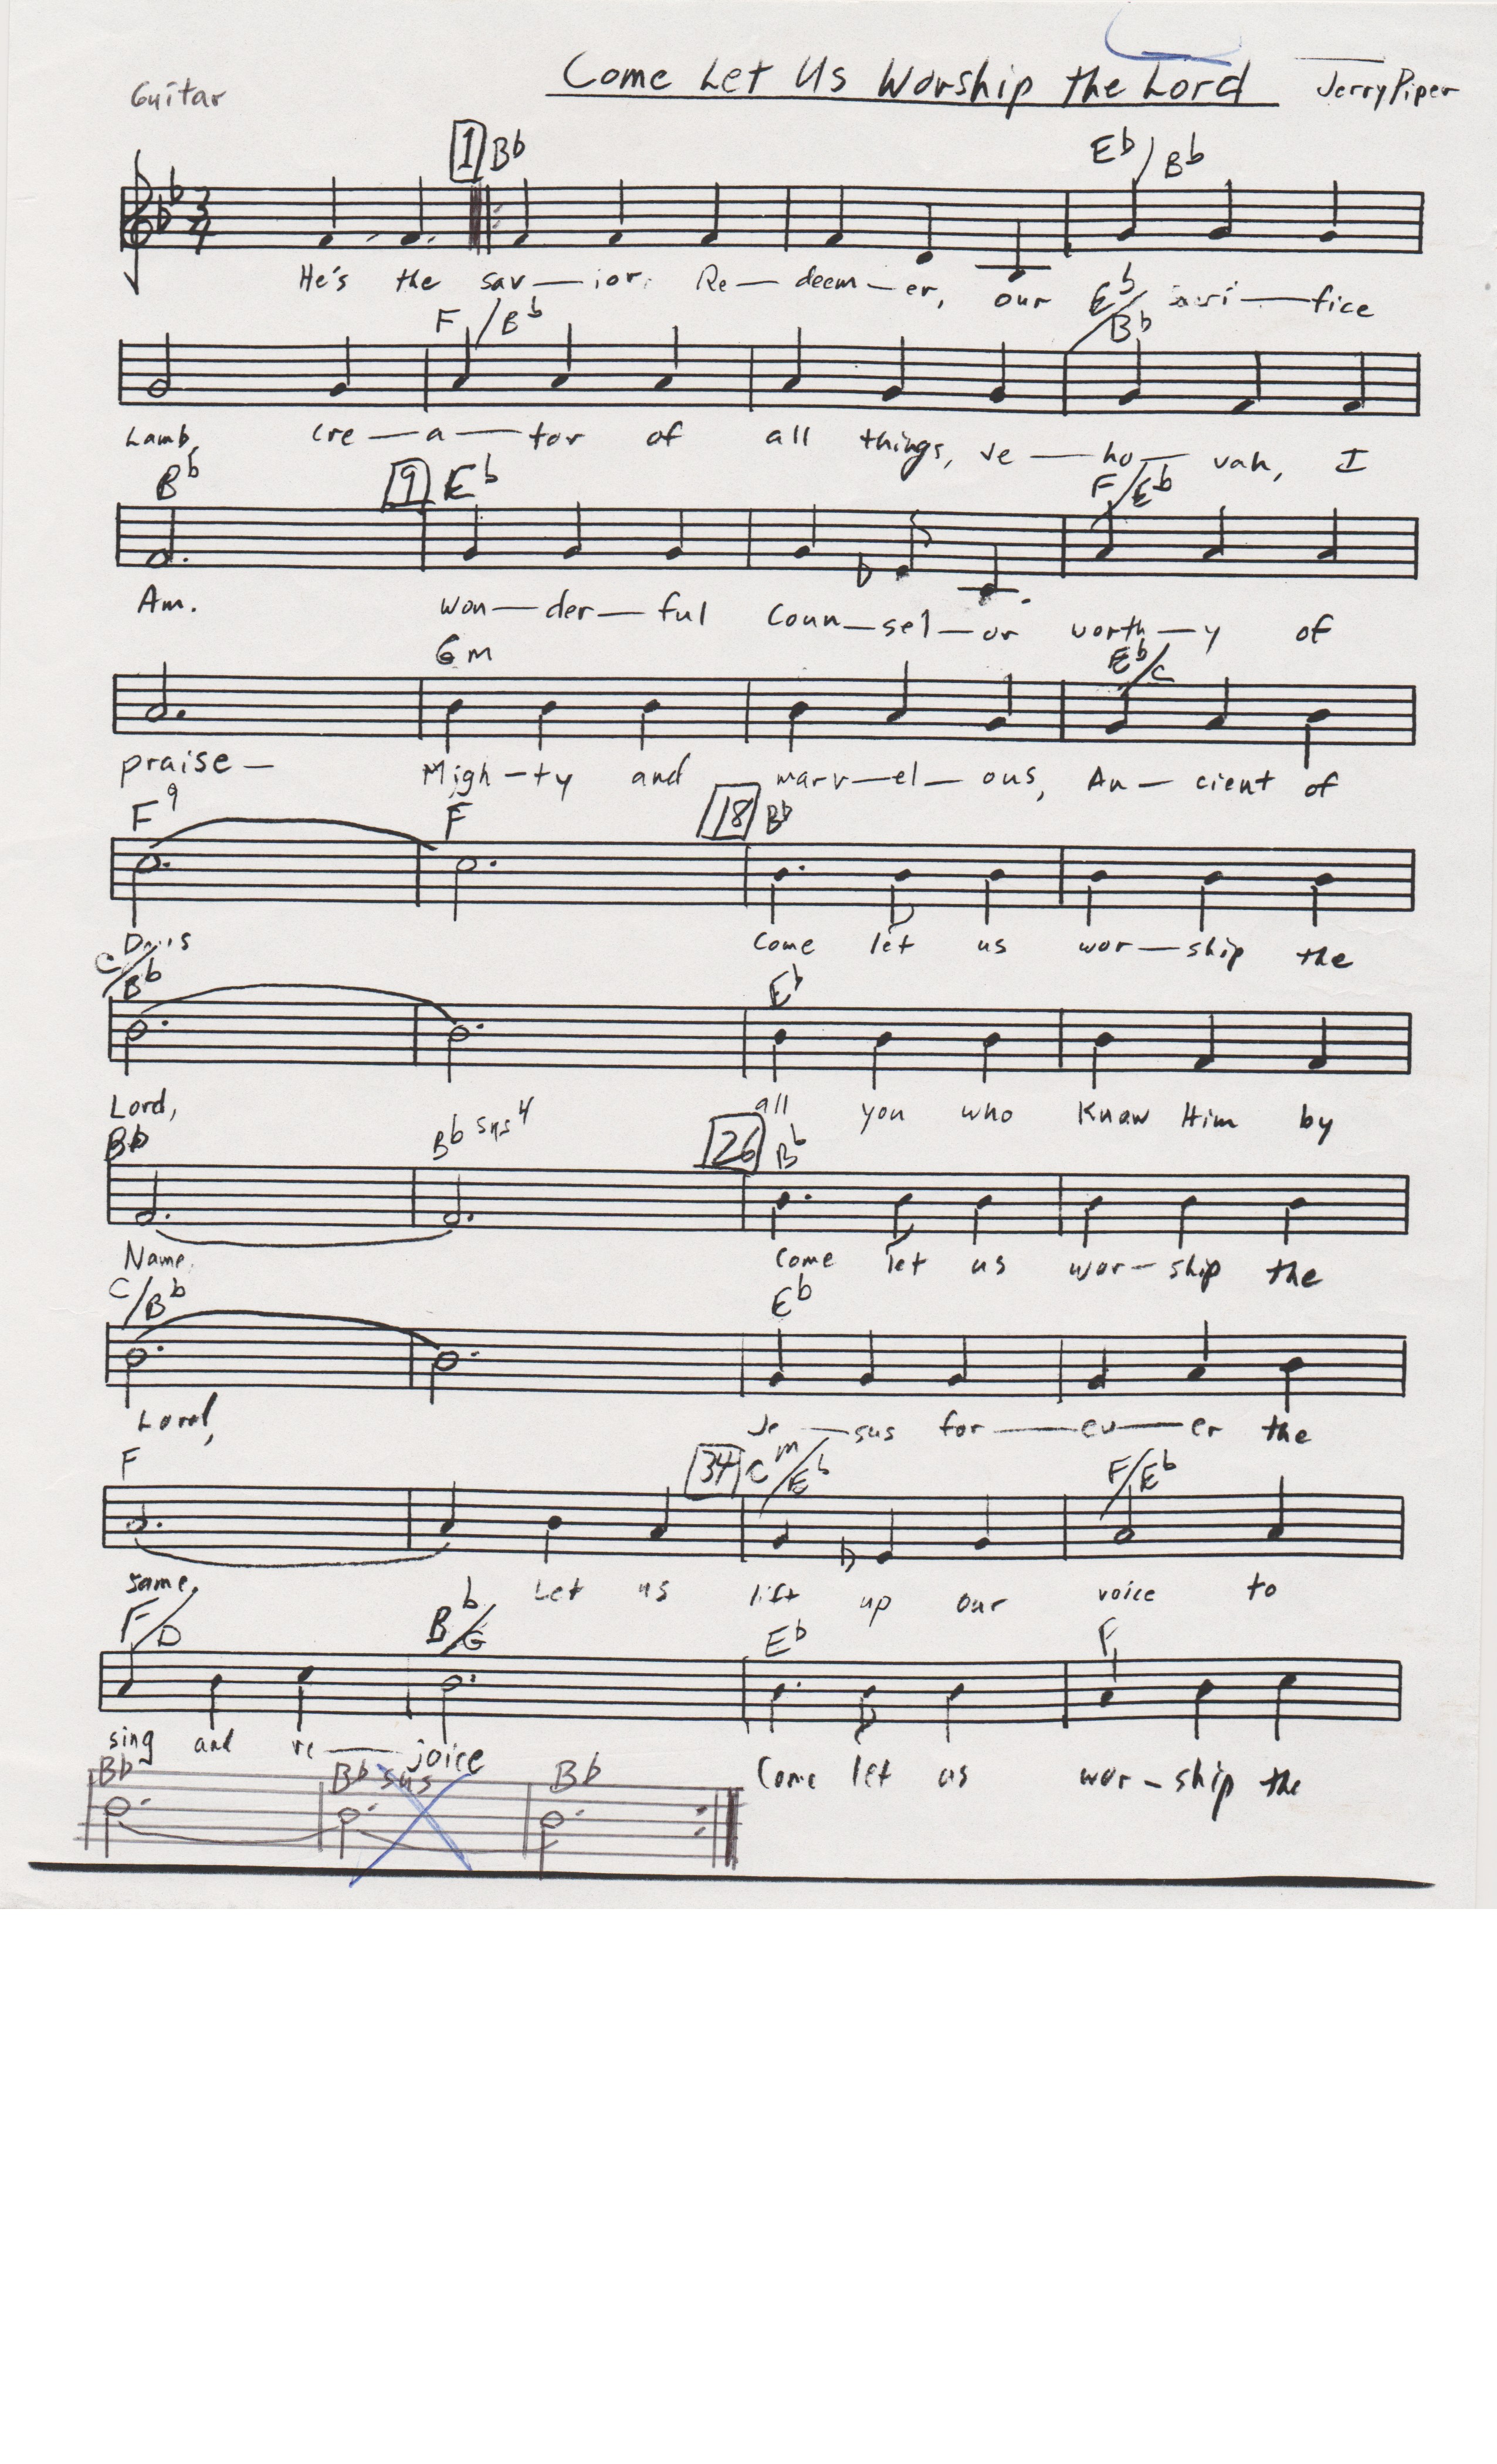 Guitar Come Let Us Worship the Lord Jerry Piper
1 Bb Eb/Bb
3/4
He's the sav—ior, Re—deem—er, our —fice
F/Bb Eb/Bb
Lamb, cre—a—tor of all things, Je—ho—vah, I
Bb 9 Eb F/Eb
Am. won—der—ful Coun—sel—or worth—y of
Gm Eb/C
praise— Migh—ty and marv—el—ous, An—cient of
F9 F 18 Bb
Come let us wor—ship the
C/Bb Eb
Lord, all you who Know Him by
Bb Bb sus4 26 Bb
Name. Come let us wor—ship the
C/Bb Eb
Lord, Je—sus for—ev—er the
F 34 Cm/Eb F/Eb
same, Let us lift up our voice to
F/D Bb/G Eb F
sing and re—joice Come let us wor—ship the
Bb Bb sus Bb